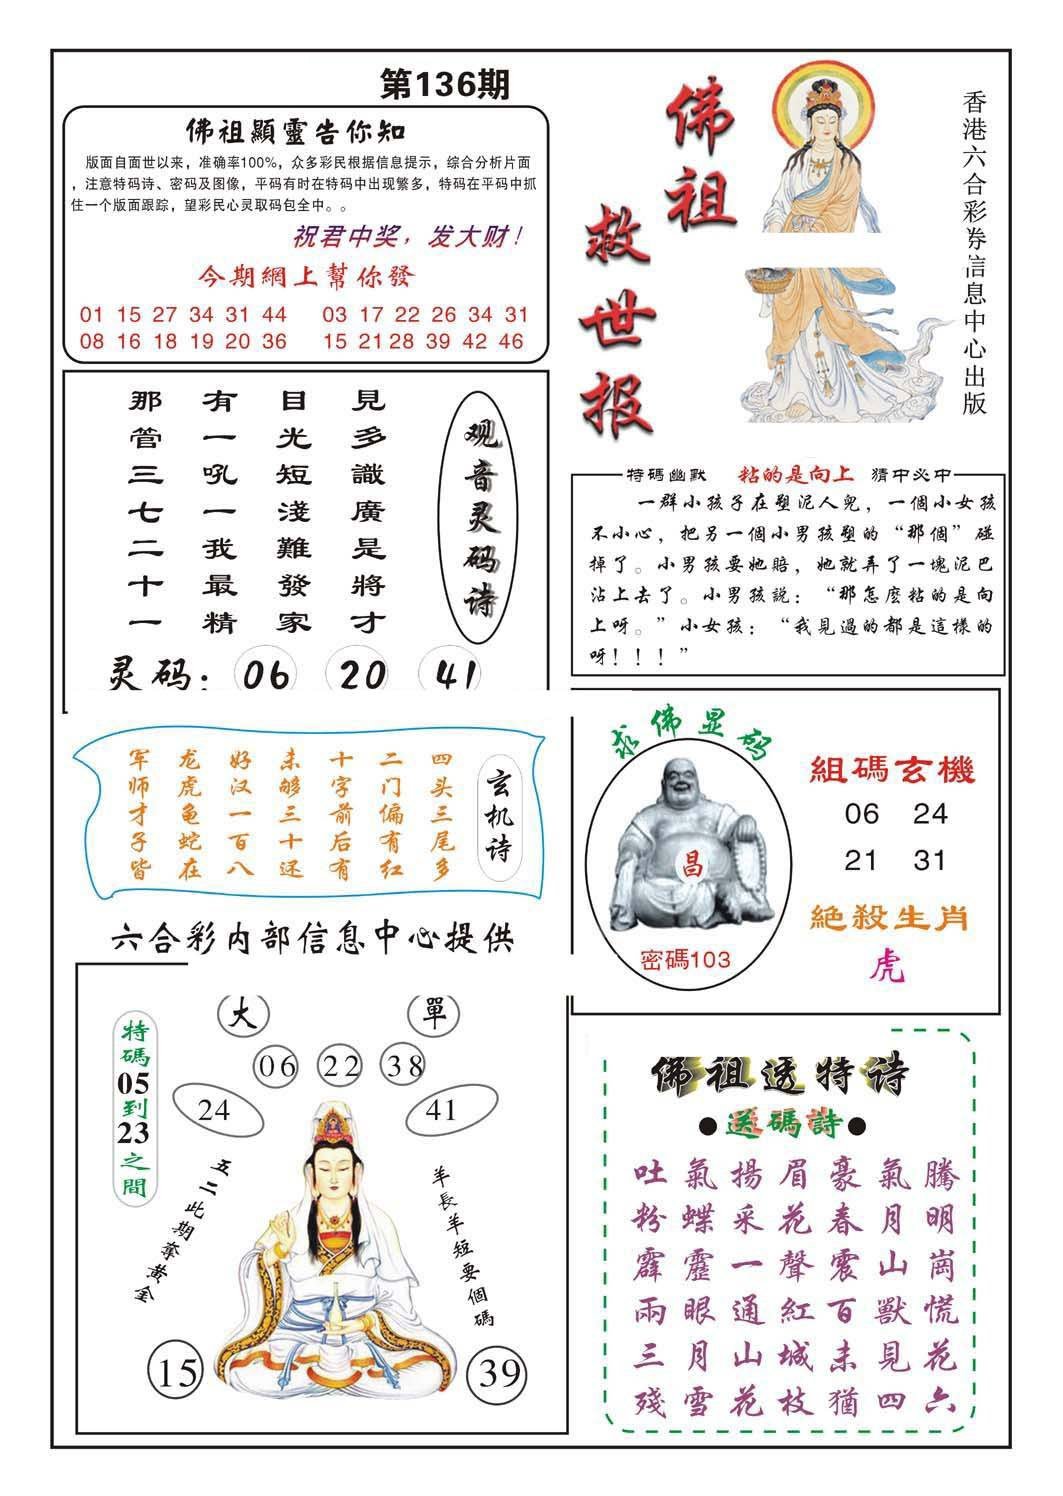 第136期
佛祖顯靈告你知
版面自面世以来，准确率100%，众多彩民根据信息提示，综合分析片面
，注意特码诗、密码及图像，平码有时在特码中出现繁多，特码在平码中抓
住一个版面跟踪，望彩民心灵取码包全中。。
祝君中奖，发大财！
今期網上幫你發
01 15 27 34 31 44 03 17 22 26 34 31
08 16 18 19 20 36 15 21 28 39 42 46
佛祖
救世报
香港六合彩券信息中心出版
观音灵码诗
見多識廣是將才
目光短淺難發家
有一吼一我最精
那管三七二十一
灵码：06 20 41
特碼幽默 粘的是向上 猜中必中
一群小孩子在塑泥人兒，一個小女孩
不小心，把另一個小男孩塑的“那個”碰
掉了。小男孩要她賠，她就弄了一塊泥巴
沾上去了。小男孩説：“那怎麽粘的是向
上呀。”小女孩：“我見過的都是這樣的
呀！！！”
玄机诗
四头三尾多
二门偏有红
十字前后有
未够三十还
好汉一百八
龙虎龟蛇在
军师才子皆
六合彩内部信息中心提供
求佛显码
昌
密碼103
組碼玄機
06 24
21 31
絶殺生肖
虎
大 單
06 22 38
24 41
特碼05到23之間
五二此期奪黄金
羊長羊短要個碼
15 39
佛祖透特诗
●送碼詩●
吐氣揚眉豪氣騰
粉蝶采花春月明
霹靂一聲震山崗
兩眼通紅百獸慌
三月山城未見花
殘雪花枝猶四六